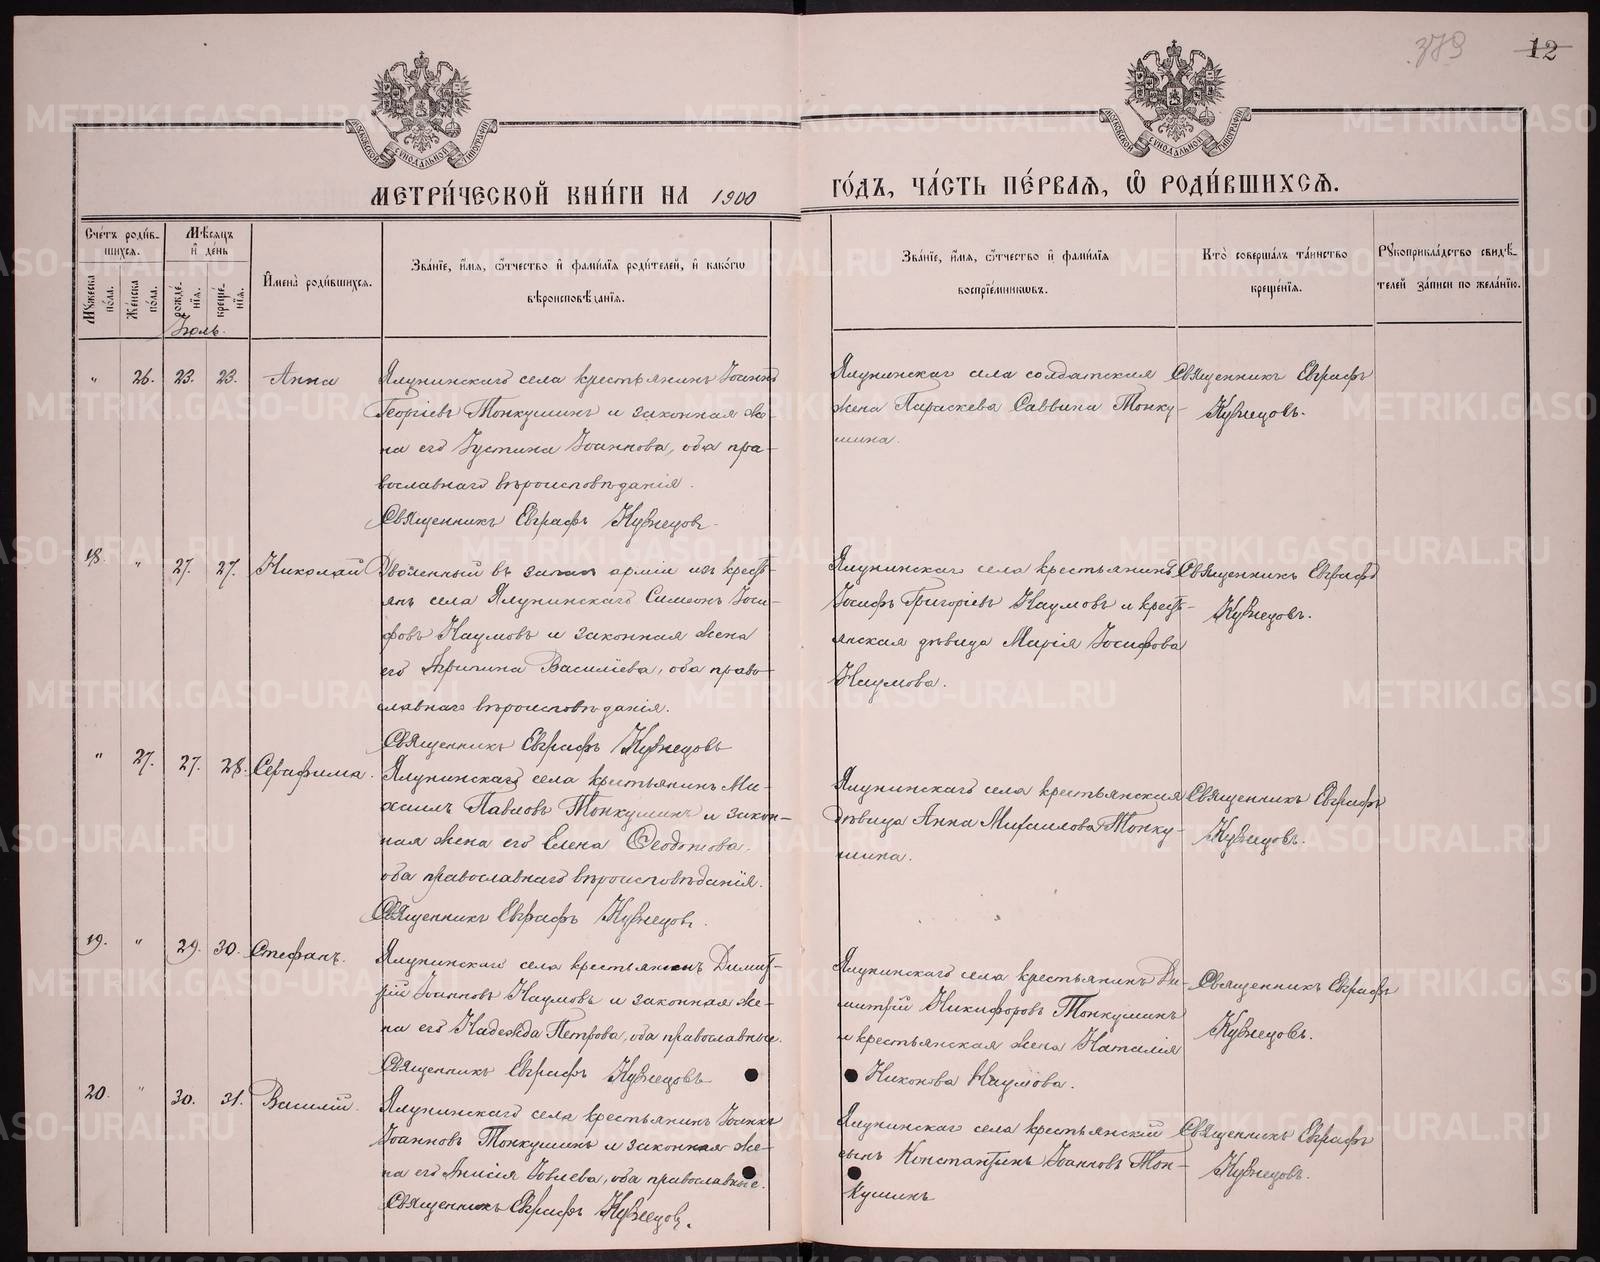 379
12
МЕТРИ́ЧЕСКОЙ КНИ́ГИ НА 1900
ГО́ДЪ, ЧА́СТЬ ПЕ́РВАѦ, Ѡ҆ РОДИ́ВШИХСѦ.
Сче́тъ роди́в-
шихсѧ.
Мѣсѧцъ
и҆ де́нь
И҆мена̀ роди́вшихсѧ.
Зва́нїе, и҆́мѧ, ѻ҆́тчество и҆ фами́лїѧ роди́телей, и҆ како́гѡ
вѣроисповѣ́данїѧ.
Зва́нїе, и҆́мѧ, ѻ҆́тчество и҆ фами́лїѧ
воспрїе́мниковъ.
Кто̀ соверша́лъ та́инство
креще́нїѧ.
Рꙋкоприкла́дство свидѣ́-
телей за́писи по жела́нїю.
Мꙋ́жеска
по́ла.
Же́нска
по́ла.
рожде́-
нїѧ.
креще́-
нїѧ.
Іюль.
" 26. 23. 23. Анна
Ялунинскаго села крестьянинъ Іоаннъ
Георгіевъ Тонкушинъ и законная же-
на его Іустина Іоаннова, оба пра-
вославнаго вѣроисповѣданія.
Священникъ Евграфъ Кузнецовъ.
Ялунинскаго села солдатская
жена Параскева Саввина Тонку-
шина.
Священникъ Евграфъ
Кузнецовъ.
18. " 27. 27. Николай
Уволенный въ запас арміи изъ кресть-
янъ села Ялунинскаго Симеонъ Іоси-
фовъ Наумовъ и законная жена
его Агрипина Василіева, оба право-
славнаго вѣроисповѣданія.
Священникъ Евграфъ Кузнецовъ
Ялунинскаго села крестьянинъ
Іосифъ Григоріевъ Наумовъ и кресть-
янская дѣвица Марія Іосифова
Наумова.
Священникъ Евграфъ
Кузнецовъ.
" 27. 27. 28. Серафима.
Ялунинскаго села крестьянинъ Ми-
хаилъ Павловъ Тонкушинъ и закон-
ная жена его Елена Ѳеодотова,
оба православнаго вѣроисповѣданія.
Священникъ Евграфъ Кузнецовъ.
Ялунинскаго села крестьянская
дѣвица Анна Михаилова Тонку-
шина.
Священникъ Евграфъ
Кузнецовъ.
19. " 29. 30. Стефанъ.
Ялунинскаго села крестьянинъ Димит-
рій Іоанновъ Наумовъ и законная же-
на его Надежда Петрова, оба православные.
Священникъ Евграфъ Кузнецовъ
Ялунинскаго села крестьянинъ Ди-
митрій Никифоровъ Тонкушинъ
и крестьянская жена Наталія
Никонова Наумова.
Священникъ Евграфъ
Кузнецовъ.
20. " 30. 31. Василій.
Ялунинскаго села крестьянинъ Іоаннъ
Іоанновъ Тонкушинъ и законная же-
на его Анисія Іовлева, оба православные.
Священникъ Евграфъ Кузнецовъ.
Ялунинскаго села крестьянскій
сынъ Константинъ Іоанновъ Тон-
кушинъ
Священникъ Евграфъ
Кузнецовъ.